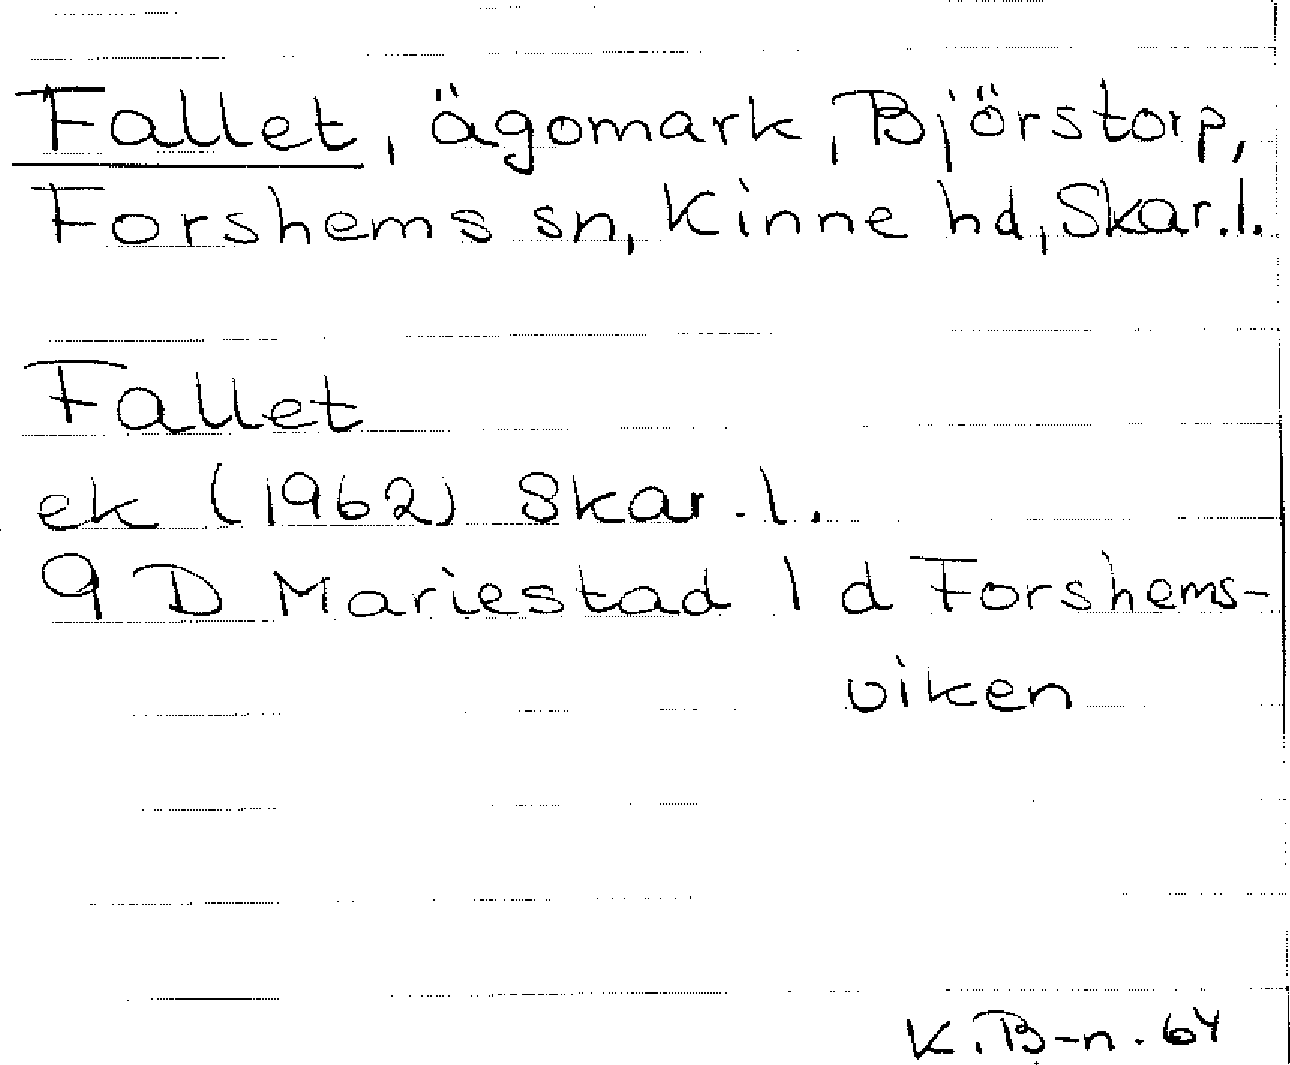 Fallet, ägomark, Björstorp,
Forshems sn, Kinne hd, Skar.l.
Fallet
ek (1962) Skar.l.
9 D Mariestad 1 d Forshems-
viken
K.B-n. 64